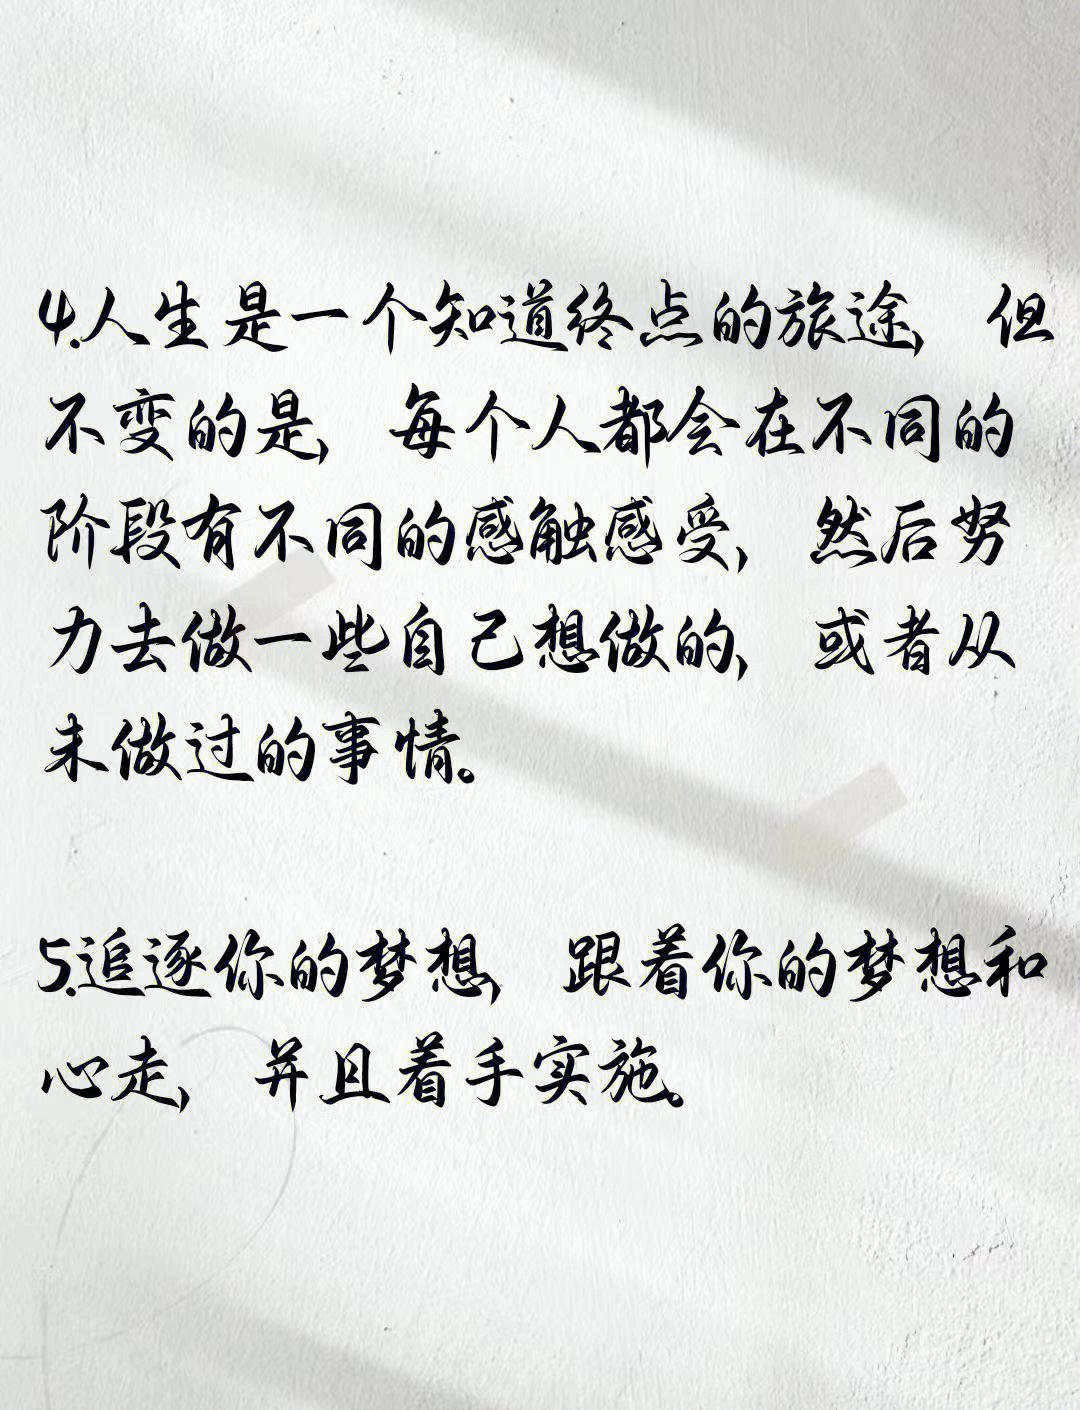 4.人生是一个知道终点的旅途，但
不变的是，每个人都会在不同的
阶段有不同的感触感受，然后努
力去做一些自己想做的，或者从
未做过的事情。
5.追逐你的梦想，跟着你的梦想和
心走，并且着手实施。